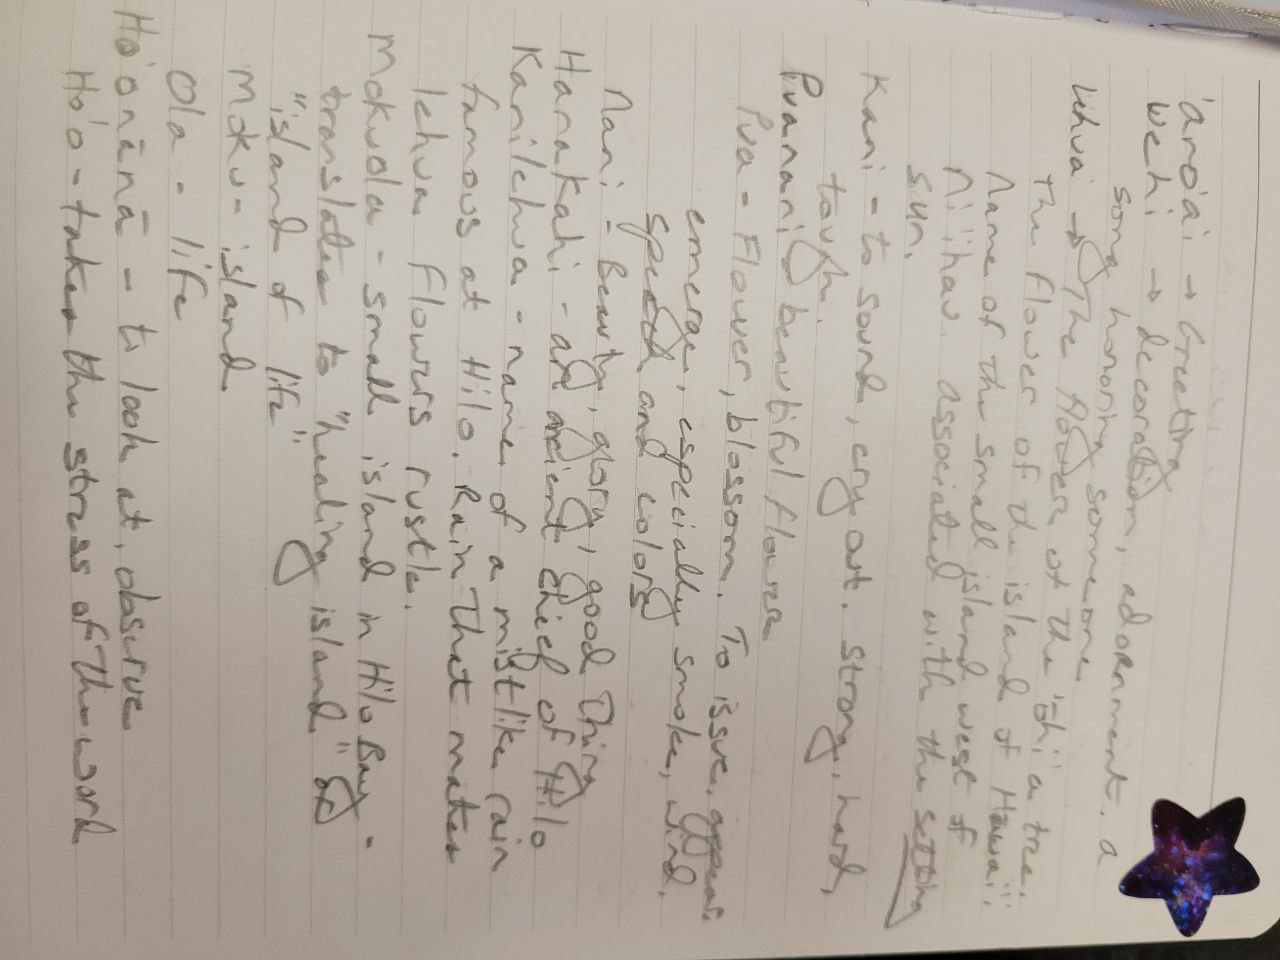 'ano'ai → Greeting
Wehi → decoration, adornment. a
song honoring someone
lehua → The flower of the 'ohi'a tree.
The flower of the island of Hawai'i.
Name of the small island west of
Ni'ihau. associated with the setting
sun.
Kani - to sound, cry out. strong, hard,
tough.
Puanani beautiful flower
Pua - Flower, blossom. To issue, appear,
emerge, especially smoke, wind,
speech and colors
Nani - Beauty, glory, good thing
Hanakahi - an ancient chief of Hilo
Kanilehua - name of a mistlike rain
famous at Hilo. Rain that makes
lehua flowers rustle.
Mokuola - small island in Hilo Bay -
translates to "healing island" or
"island of life"
Moku - island
Ola - life
Ho'onānā - to look at, observe
Ho'o - takes the stress of the word